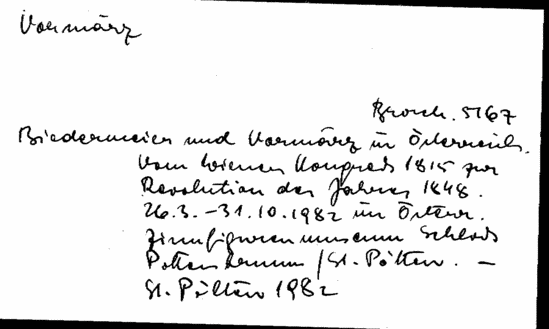 Vormärz
Brosch. 5167
Biedermeier und Vormärz in Österreich.
Vom Wiener Kongress 1815 zur
Revolution des Jahres 1848.
26.3.-31.10.1982 im Österr.
Zinnfigurenmuseum Schloss
Pottenbrunn / St. Pölten. -
St. Pölten 1982